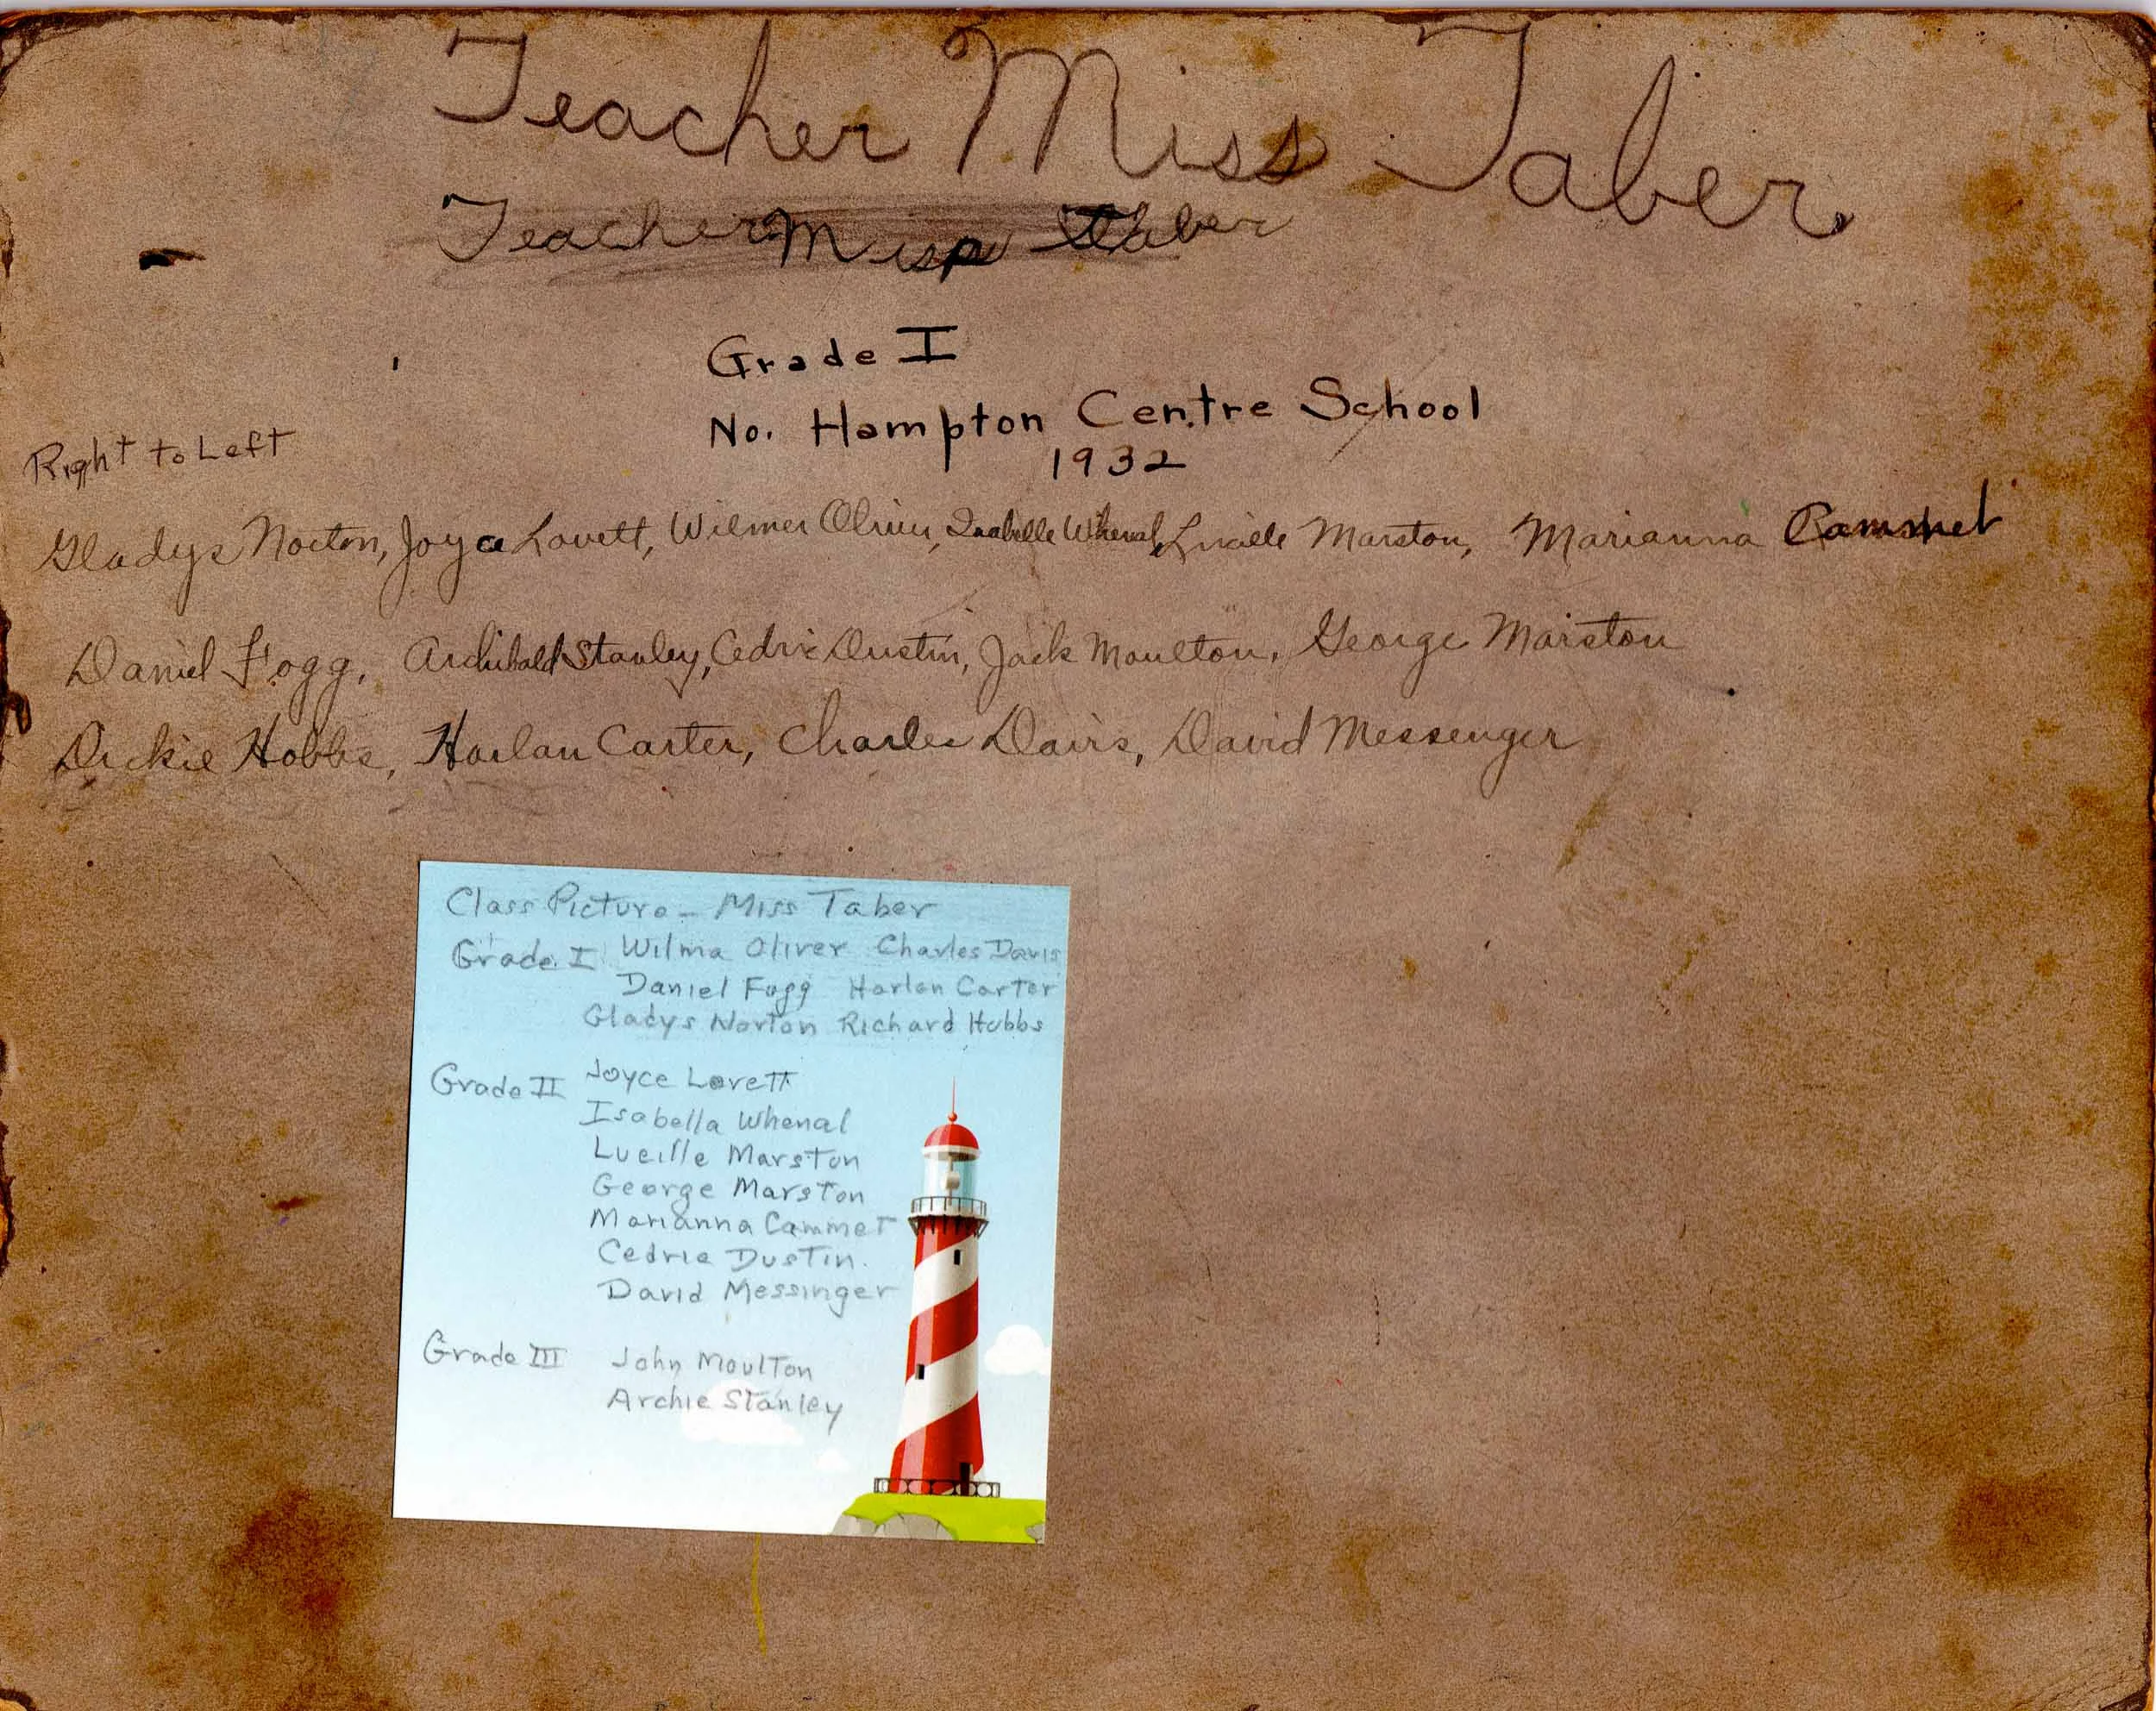 Teacher Miss Taber.
Teacher Miss Taber
Grade I
No. Hampton Centre School
1932
Right to Left
Gladys Norton, Joyce Lovett, Wilmer Oliver, Isabelle Whenal, Lucille Marston, Marianna Cammet
Daniel Fogg, Archibald Stanley, Cedric Dustin, Jack Moulton, George Marston
Dickie Hobbs, Harlan Carter, Charles Davis, David Messenger
Class Picture - Miss Taber
Grade I Wilma Oliver Charles Davis
Daniel Fogg Harlan Carter
Gladys Norton Richard Hobbs
Grade II Joyce Lovett
Isabella Whenal
Lucille Marston
George Marston
Marianna Cammet
Cedric Dustin.
David Messinger
Grade III John Moulton
Archie Stanley